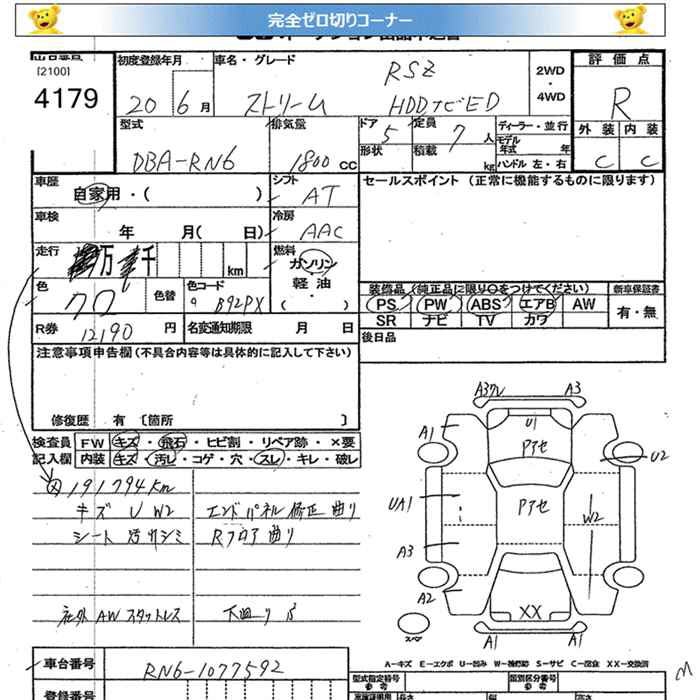 完全ゼロ切りコーナー
[2100]
4179
初度登録年月
20年6月
車名・グレード
RSZ
ストリーム HDDナビED
2WD
・
4WD
評価点
R
外装 内装
C C
型式
DBA-RN6
排気量
1800 CC
ドア 5
形状
定員 7人
積載 kg
ディーラー・並行
モデル年式 年
ハンドル 左・右
車歴
自家用・( )
シフト
AT
セールスポイント (正常に機能するものに限ります)
車検
年 月( 日)
冷房
AAC
走行
万 千 km
燃料
ガソリン
・
軽油
( ・ )
色
クロ
色替
色コード
B92PX
装備品(純正品に限り○をつけてください)
新車保証書
PS PW ABS エアB AW
有・無
SR ナビ TV カワ
R券
12190 円
名変通知期限 月 日
後日品
注意事項申告欄(不具合内容等は具体的に記入して下さい)
修復歴 有 〔箇所 〕
検査員
記入欄
FW キズ・飛石・ヒビ割・リペア跡・×要
内装 キズ・汚レ・コゲ・穴・スレ・キレ・破レ
191794km
キズ U W2
エンドパネル修正曲り
シート汚りシミ
Rフロア曲り
社外AWスタットレス
下廻りS
A3 A3
A1 U1 アセ U2
UA1 アセ W2
A3
A2 XX
スペア A1 A1
A-キズ E-エクボ U-凹み W-補修跡 S-サビ C-腐食 XX-交換済
車台番号
RN6-1077592
登録番号
型式指定番号
参考
類別区分番号
参考
長さ 幅 高さ